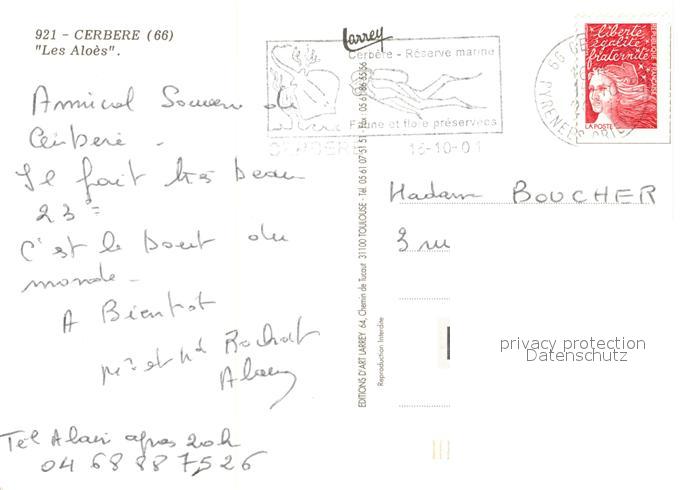 921 - CERBERE (66)
"Les Aloès".
Amical Souvenir de
Cerbère.
Il fait très beau
23°
C'est le bout du
monde.
A Bientot
Mr et Md Rochat
Alain
Tel Alain apres 20h
04 68 88 75 26
Larrey
EDITIONS D'ART LARREY 64, Chemin de Tucaut 31100 TOULOUSE - Tél. 05 61 07 51 51 - Fax 05 61 86 65 56
Reproduction Interdite
Cerbère - Réserve marine
Faune et flore préservées
CERBERE 16-10-01
66 CERBERE
PYRENEES ORIENT
Liberté
égalité
fraternité
REPUBLIQUE FRANÇAISE
LA POSTE
Madam BOUCHER
3 rue
privacy protection
Datenschutz